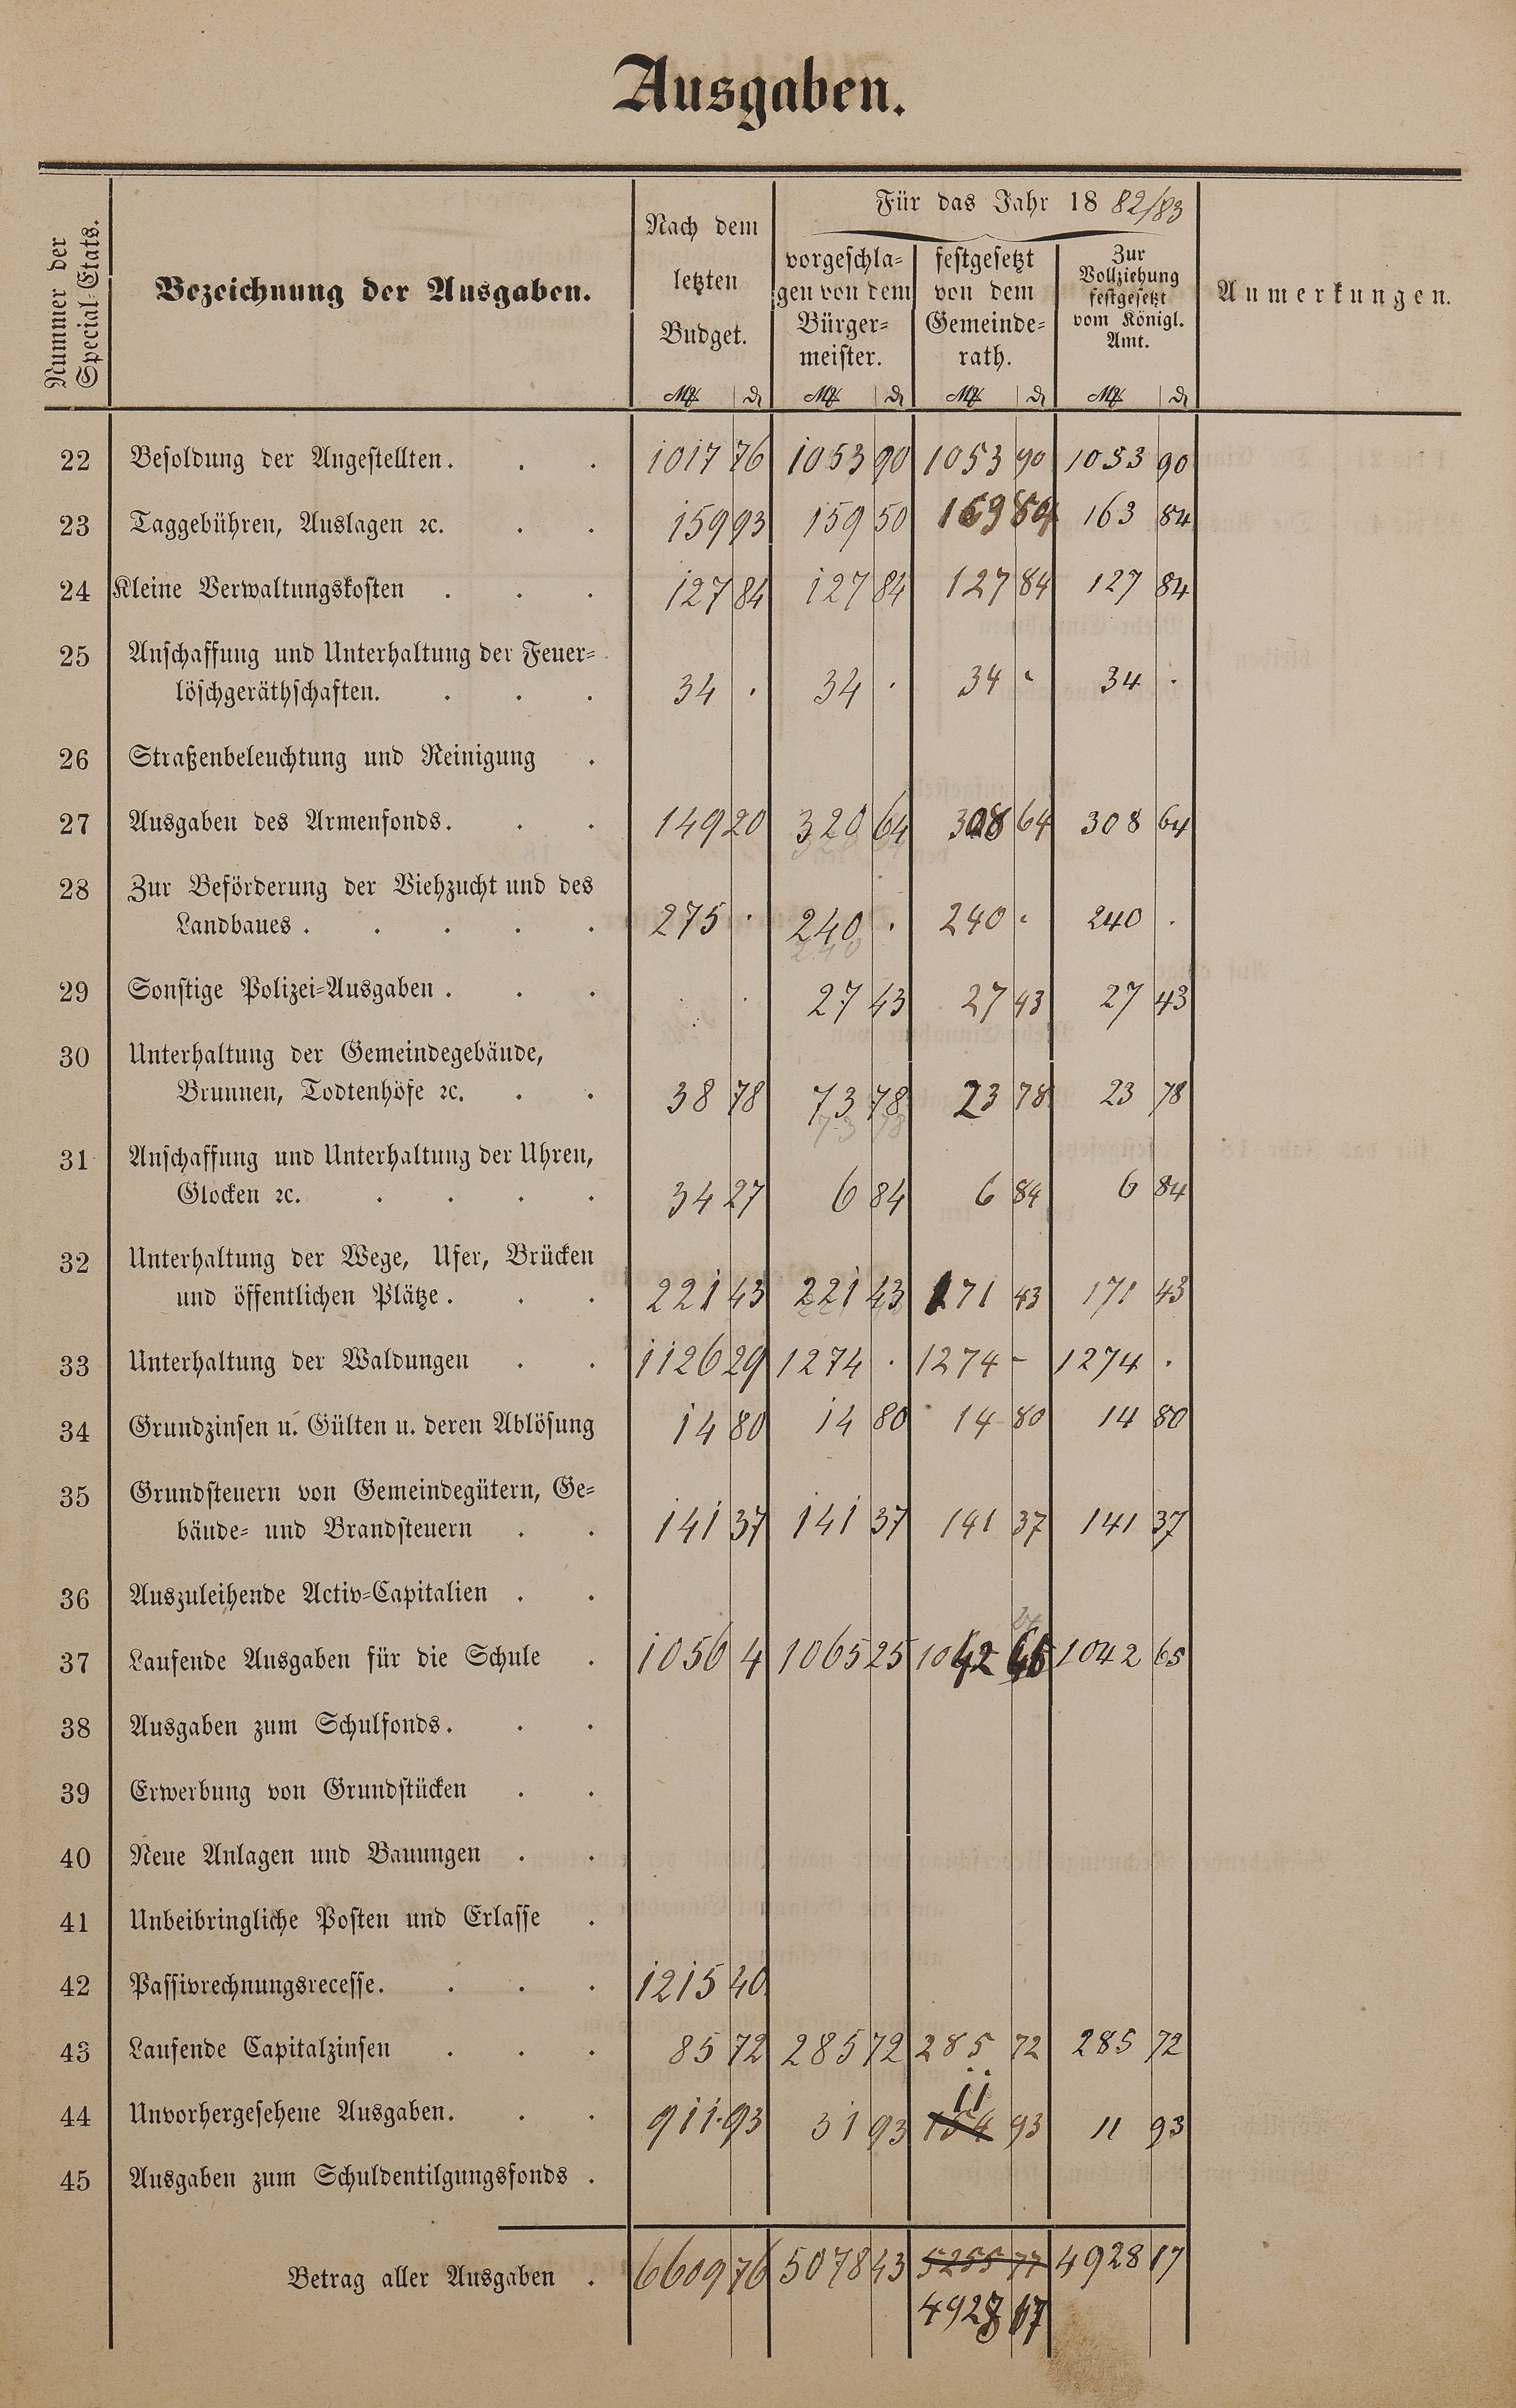 Ausgaben.
Nummer der Special-Etats.
Bezeichnung der Ausgaben.
Nach dem letzten Budget.
Für das Jahr 18 82/83
vorgeschla-
gen von dem
Bürger-
meister.
festgesetzt
von dem
Gemeinde-
rath.
Zur
Vollziehung
festgesetzt
vom Königl.
Amt.
Anmerkungen.
ℳ ₰ ℳ ₰ ℳ ₰ ℳ ₰
22 Besoldung der Angestellten. . . 1017 76 1053 90 1053 90 1053 90
23 Taggebühren, Auslagen ꝛc. . . 159 93 159 50 163 84 163 84
24 Kleine Verwaltungskosten . . . 127 84 127 84 127 84 127 84
25 Anschaffung und Unterhaltung der Feuer-
löschgeräthschaften. . . . 34 . 34 . 34 . 34 .
26 Straßenbeleuchtung und Reinigung .
27 Ausgaben des Armenfonds. . . 149 20 320 64 308 64 308 64
28 Zur Beförderung der Viehzucht und des
Landbaues . . . . . 275 . 240 . 240 . 240 .
29 Sonstige Polizei-Ausgaben . . . . 27 43 27 43 27 43
30 Unterhaltung der Gemeindegebäude,
Brunnen, Todtenhöfe ꝛc. . . 38 78 73 78 23 78 23 78
31 Anschaffung und Unterhaltung der Uhren,
Glocken ꝛc. . . . . 34 27 6 84 6 84 6 84
32 Unterhaltung der Wege, Ufer, Brücken
und öffentlichen Plätze . . . 221 43 221 43 171 43 171 43
33 Unterhaltung der Waldungen . . 1126 29 1274 . 1274 – 1274 .
34 Grundzinsen u. Gülten u. deren Ablösung 14 80 14 80 14 80 14 80
35 Grundsteuern von Gemeindegütern, Ge-
bäude- und Brandsteuern . . 141 37 141 37 141 37 141 37
36 Auszuleihende Activ-Capitalien . .
37 Laufende Ausgaben für die Schule . 1056 4 1065 25 1042 65 1042 65
38 Ausgaben zum Schulfonds. . .
39 Erwerbung von Grundstücken . .
40 Neue Anlagen und Bauungen . .
41 Unbeibringliche Posten und Erlasse .
42 Passivrechnungsrecesse. . . . 1215 40
43 Laufende Capitalzinsen . . . 85 72 285 72 285 72 285 72
11
44 Unvorhergesehene Ausgaben. . . 911.93 31 93 154 93 11 93
45 Ausgaben zum Schuldentilgungsfonds .
Betrag aller Ausgaben . 6609 76 5078 43 5255 77 4928 17
4928 17